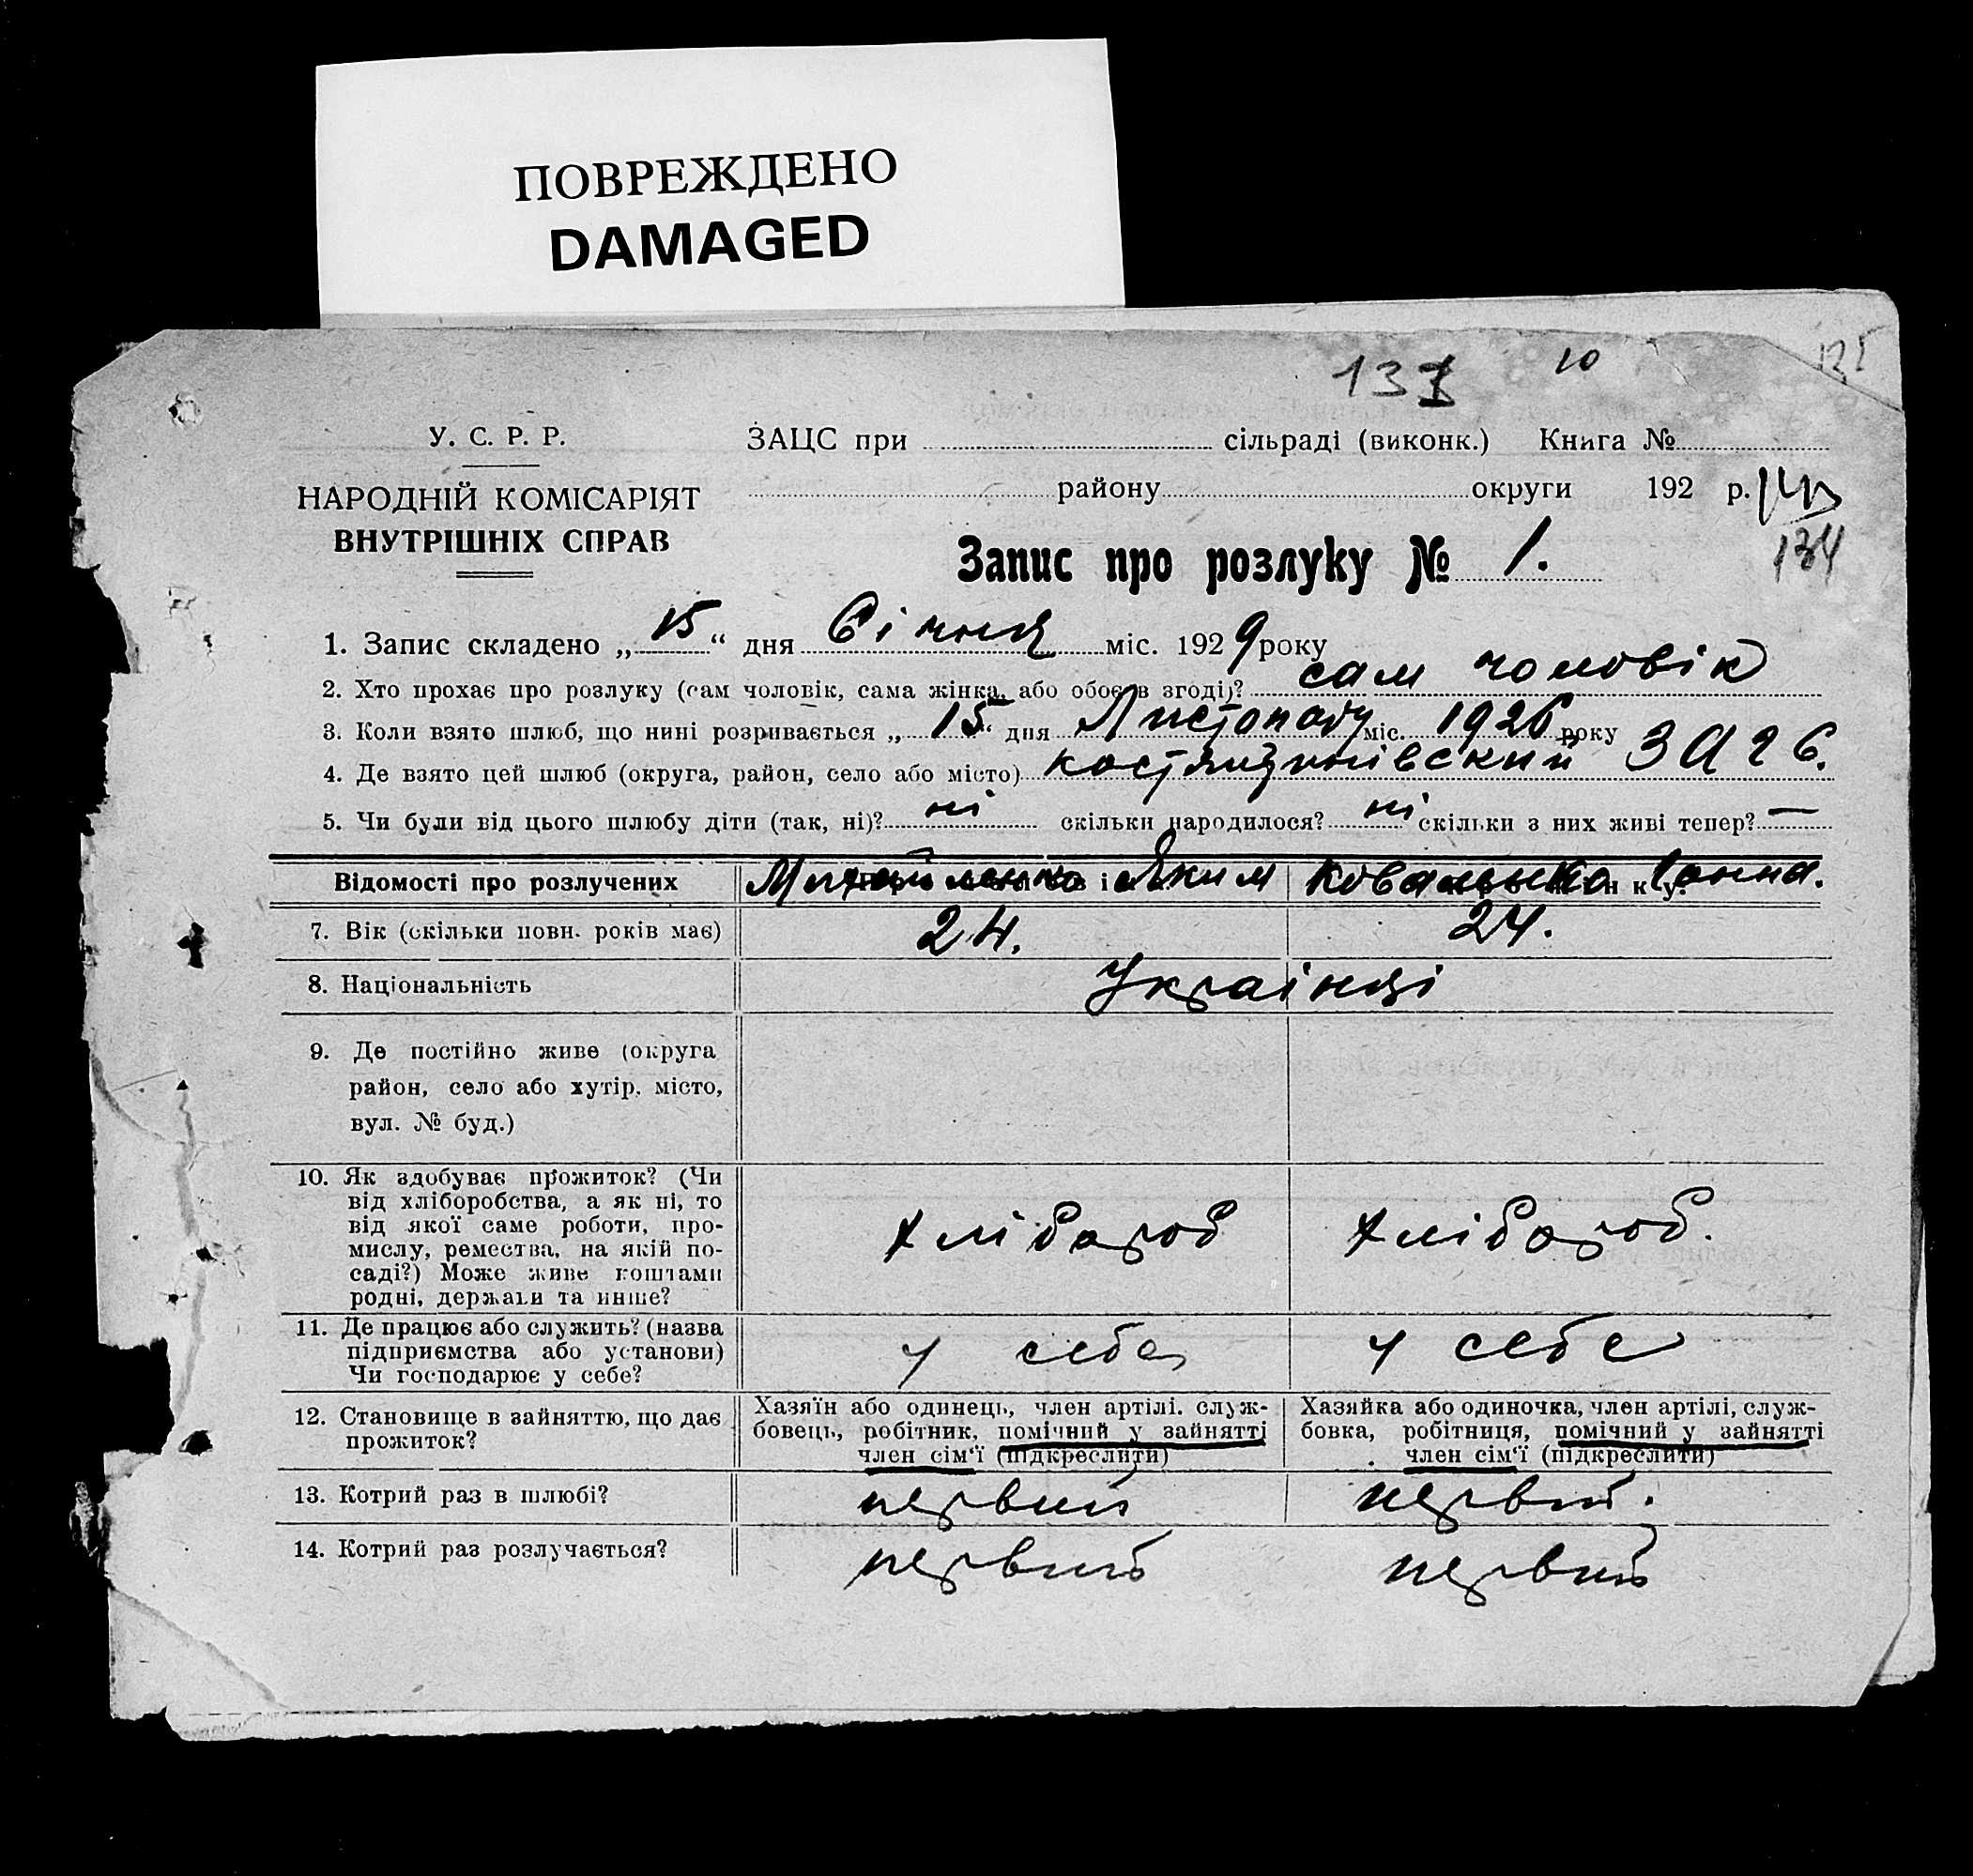 ПОВРЕЖДЕНО
DAMAGED
10
У. С. Р. Р.
ЗАЦС при сільраді (виконк.) Книга №
НАРОДНІЙ КОМІСАРІЯТ
ВНУТРІШНІХ СПРАВ
району округи 192 р.
134
Запис про розлуку № 1.
1. Запис складено „15“ дня Січня міс. 1929 року
2. Хто прохає про розлуку (сам чоловік, сама жінка, або обоє в згоді)? сам чоловік
3. Коли взято шлюб, що нині розривається „15“ дня Листопаду міс. 1926 року
4. Де взято цей шлюб (округа, район, село або місто) ЗАГС.
5. Чи були від цього шлюбу діти (так, ні)? ні скільки народилося? ні скільки з них живі тепер? —
Відомості про розлучених Михайленко Яким Коваленко
7. Вік (скільки повн. років має) 24. 24.
8. Національність Українці
9. Де постійно живе (округа
район, село або хутір, місто,
вул. № буд.)
10. Як здобуває прожиток? (Чи
від хліборобства, а як ні, то
від якої саме роботи, про-
мислу, ремества, на якій по-
саді?) Може живе коштами
родні, держави та инше?
хлібороб хлібороб.
11. Де працює або служить? (назва
підприємства або установи)
Чи господарює у себе?
у себе у себе
12. Становище в зайняттю, що дає
прожиток?
Хазяїн або одинець, член артілі, служ-
бовець, робітник, помічний у зайнятті
член сім'ї (підкреслити)
Хазяйка або одиночка, член артілі, служ-
бовка, робітниця, помічний у зайнятті
член сім'ї (підкреслити)
13. Котрий раз в шлюбі? первий первий.
14. Котрий раз розлучається? первий первий